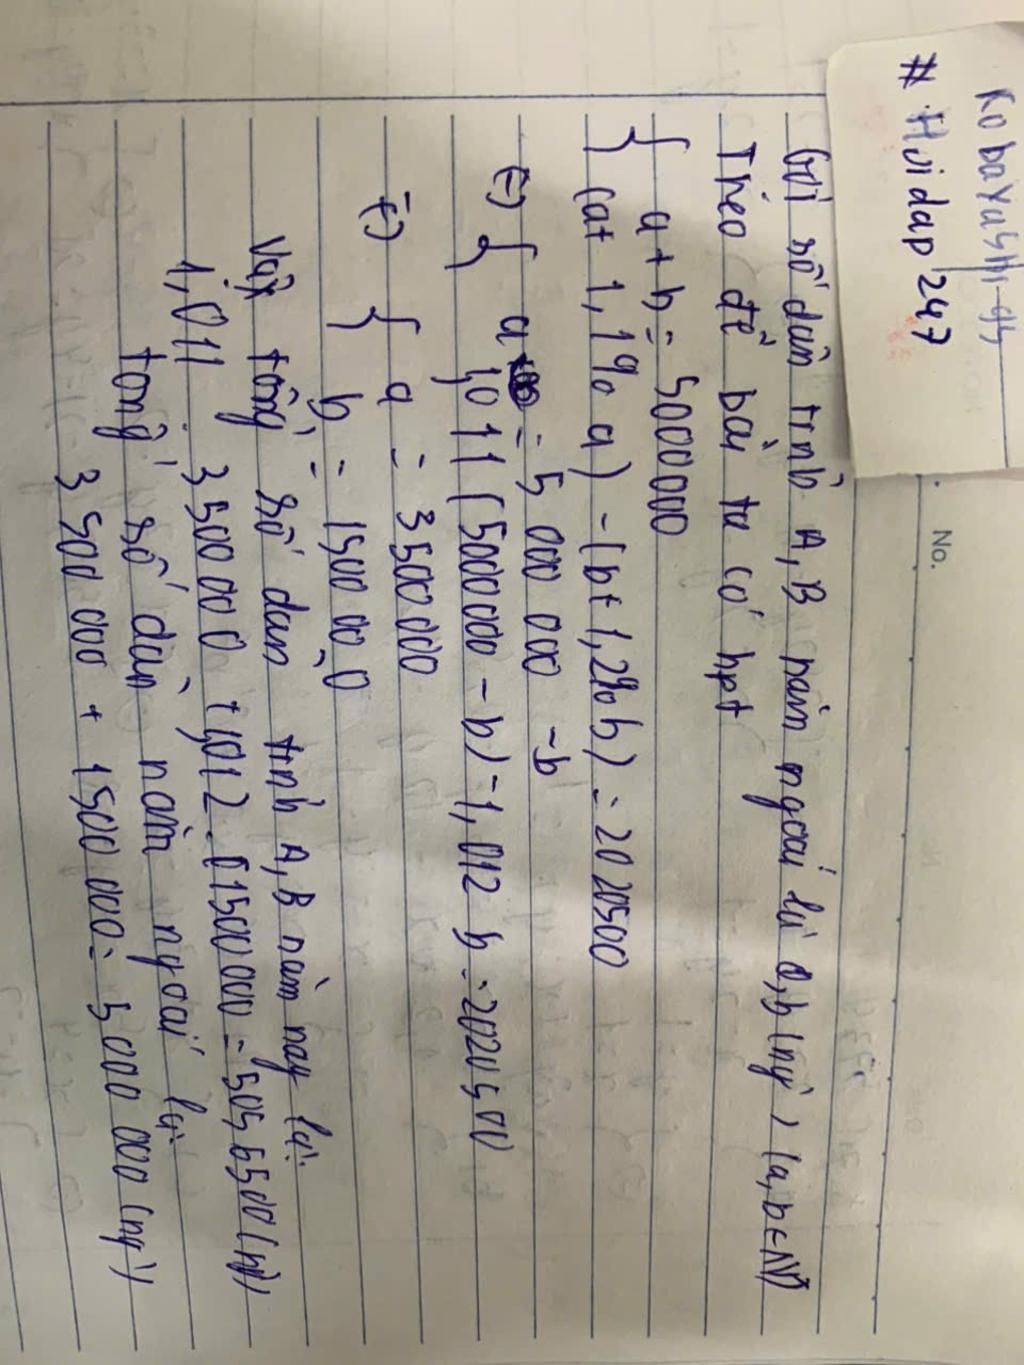 KobayaSHI-gs
# Hoidap247
No.
Gọi số dân tỉnh A, B năm ngoái là a,b (ng') (a,b∈N*)
Theo đề bài ta có hpt
{ a + b = 5000000
{ (a+ 1,1% a) - (b+1,2%b) = 2020500
(=) { a = 5 000 000 -b
1,011(5000000 - b) -1,012 b = 2020500
(=) { a = 3500000
{ b = 1500000
Vậy tổng số dân tỉnh A, B năm nay là:
1,011 . 3500000 +1,012 . 1500000 = 5056500 (ng')
tổng số dân năm ngoái là:
3 500 000 + 1500 000 = 5000 000 (ng')